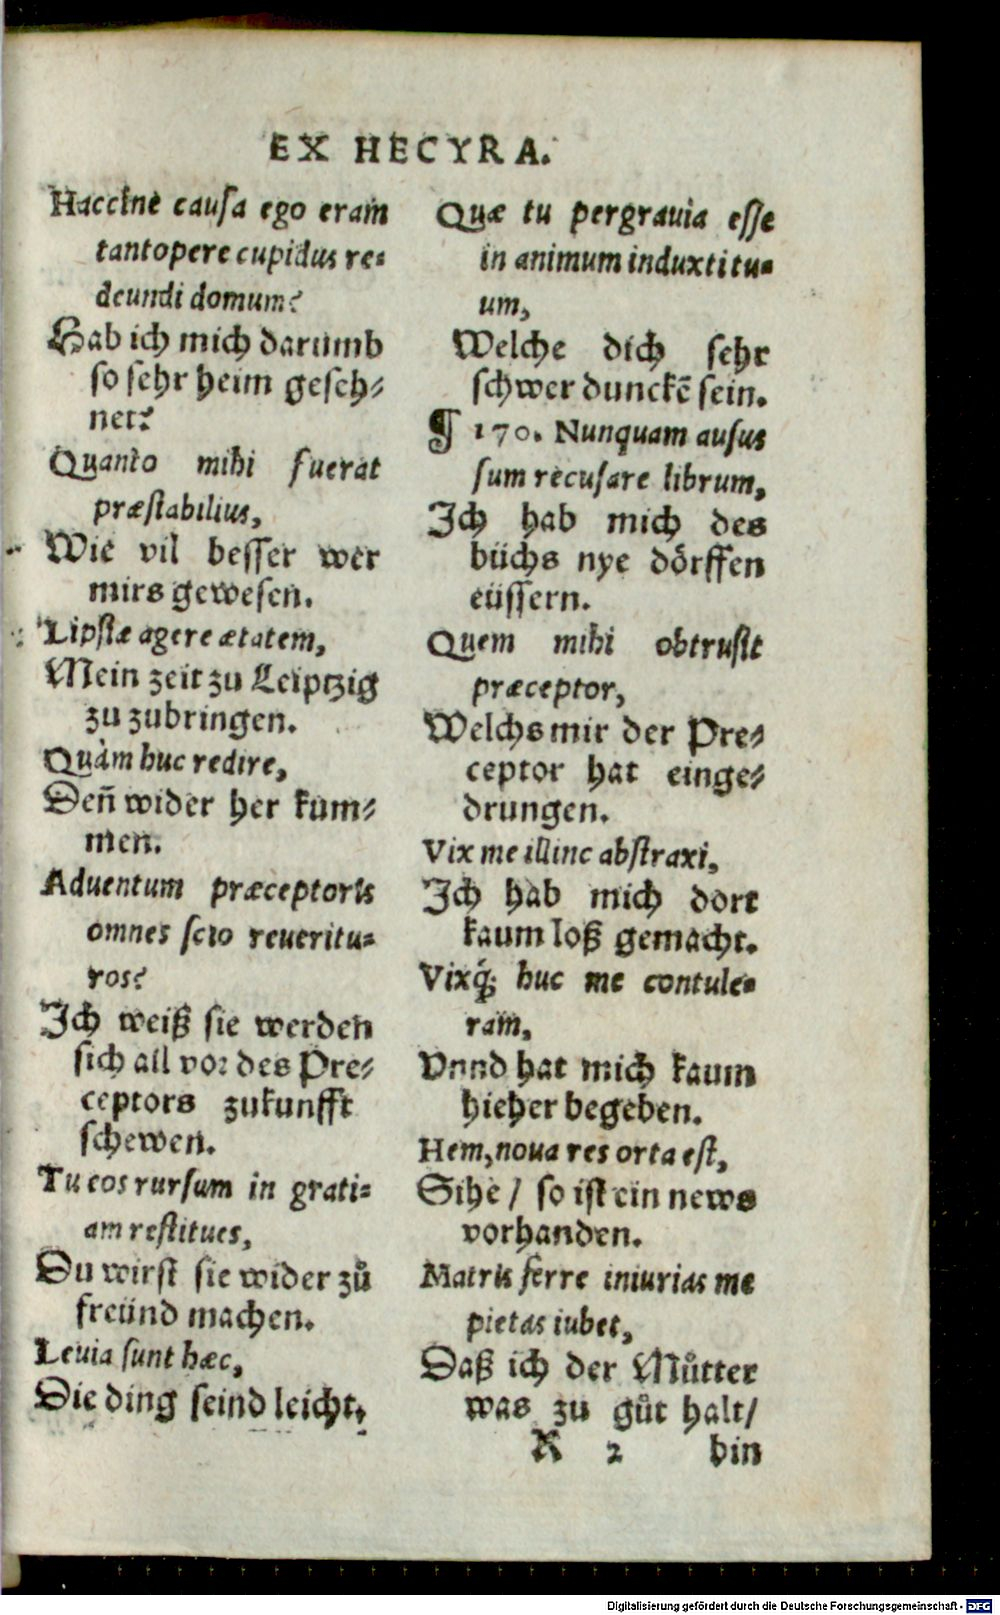 EX HECYRA.
Haccine causa ego eram
tantopere cupidus re-
deundi domum?
Hab ich mich darumb
so sehr heim geseh-
net?
Quanto mihi fuerat
præstabilius,
Wie vil besser wer
mirs gewesen.
Lipsiæ agere ætatem,
Mein zeit zu Leiptzig
zu zubringen.
Quàm huc redire,
Deñ wider her kum-
men.
Aduentum præceptoris
omnes scio reueritu-
ros?
Ich weiß sie werden
sich all vor des Pre-
ceptors zukunfft
schewen.
Tu eos rursum in grati-
am restitues,
Du wirst sie wider zů
freünd machen.
Leuia sunt hæc,
Die ding seind leicht.
Quæ tu pergrauia esse
in animum induxti tu-
um,
Welche dich sehr
schwer dunckē sein.
¶ 170. Nunquam ausus
sum recusare librum,
Ich hab mich des
büchs nye dörffen
eüssern.
Quem mihi obtrusit
præceptor,
Welchs mir der Pre-
ceptor hat einge-
drungen.
Vix me illinc abstraxi,
Ich hab mich dort
kaum loß gemacht.
Vixq́; huc me contule-
ram,
Vnnd hat mich kaum
hieher begeben.
Hem, noua res orta est,
Sihe / so ist ein news
vorhanden.
Matris ferre iniurias me
pietas iubet,
Daß ich der Můtter
was zu gůt halt/
R 2 bin
Digitalisierung gefördert durch die Deutsche Forschungsgemeinschaft - DFG